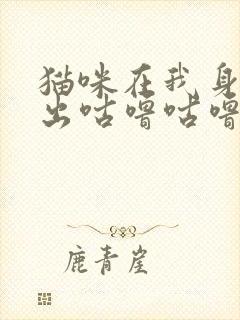 猫咪在我身
出咕噜咕噜
鹿青崖